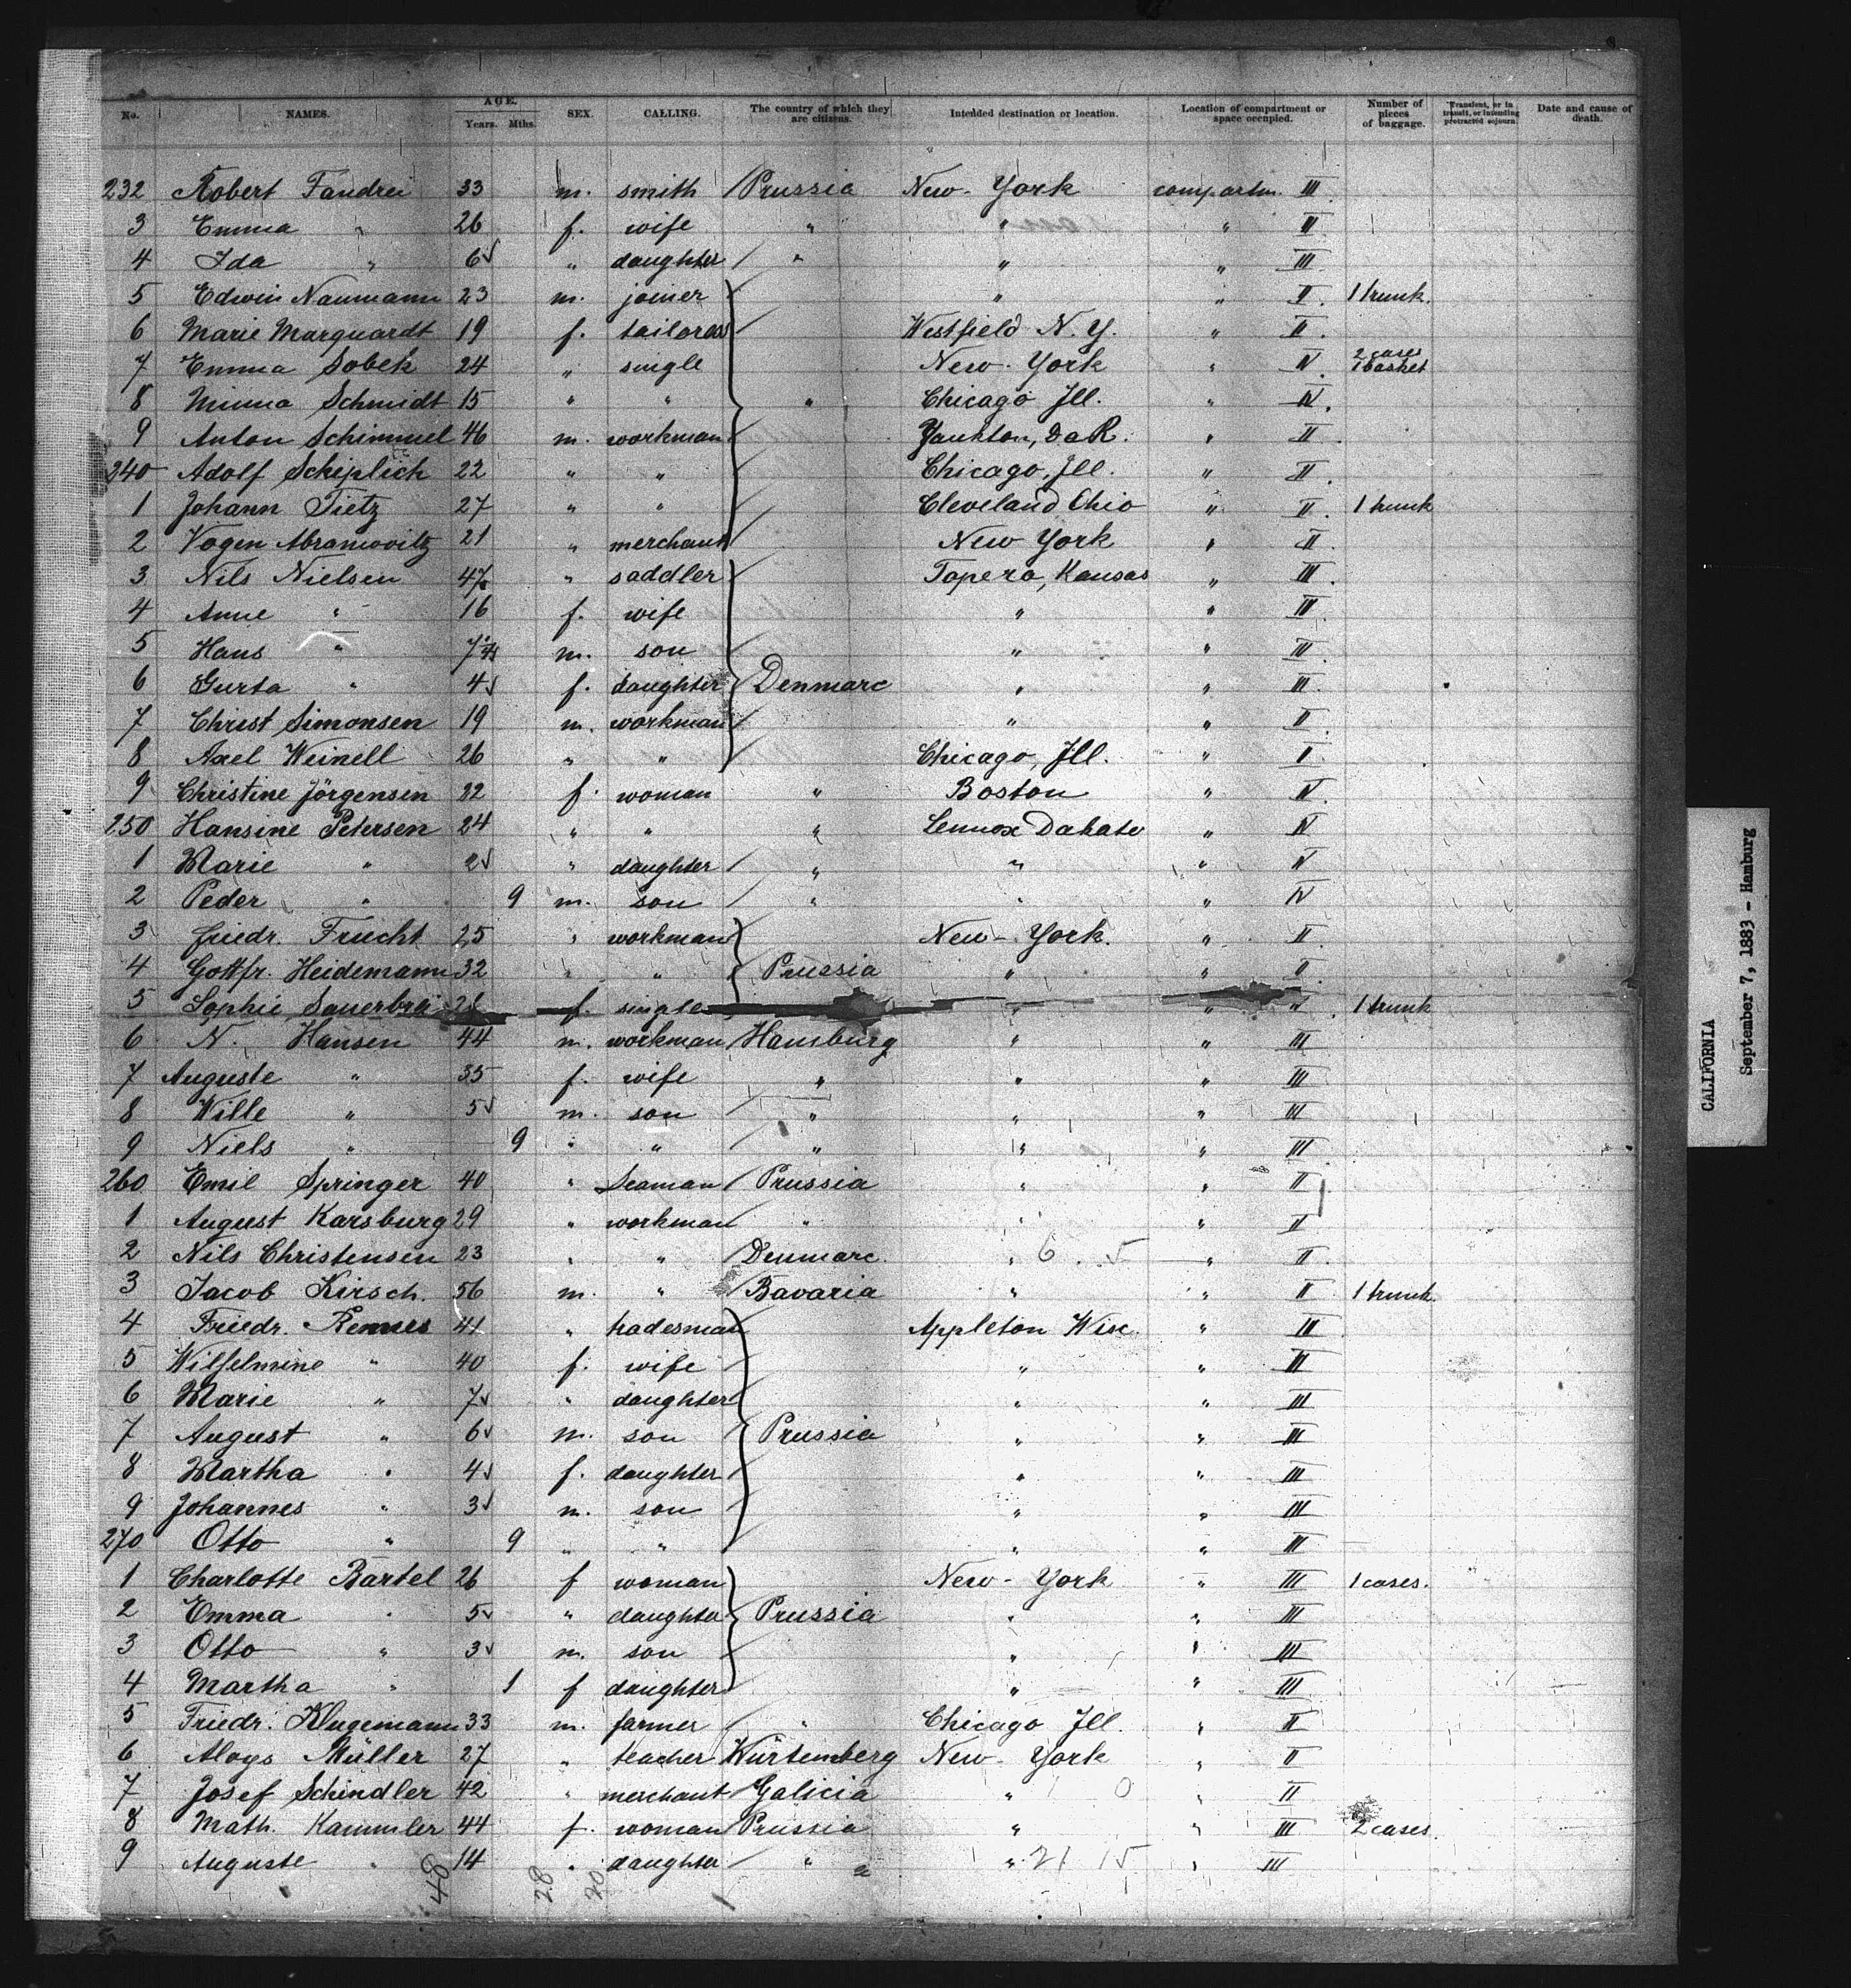 No. NAMES. AGE. Years. Mths. SEX. CALLING. The country of which they are citizens. Intended destination or location. Location of compartment or space occupied. Number of pieces of baggage. Transient, or in transit, or intending protracted sojourn. Date and cause of death.
232 Robert Fandrei 33 m. smith Prussia New-York compartm. III
3 Emma " 26 f. wife " " " III
4 Ida " 6 " daughter " " " III
5 Edwin Naumann 23 m. joiner " " II. 1 trunk.
6 Marie Marquardt 19 f. tailoress Westfield N.Y. " II.
7 Emma Sobek 24 " single New-York " IV. 2 cases 1 basket
8 Minna Schmidt 15 " " " Chicago Ill. " IV.
9 Anton Schimmel 46 m. workman Yankton, DaK. " II.
240 Adolf Schiplich 22 " " Chicago, Ill. " II.
1 Johann Tietz 27 " " Cleveland Ohio " II. 1 trunk
2 Vogen Abramowitz 21 " merchant New York " II.
3 Nils Nielsen 47 " saddler Topera, Kansas " III.
4 Anne " 16 f. wife " " III.
5 Hans " 7 m. son " " III.
6 Gurta " 4 f. daughter Denmarc " " III.
7 Christ Simonsen 19 m. workman " " II.
8 Axel Weinell 26 " " Chicago, Ill. " II.
9 Christine Jörgensen 22 f. woman " Boston " IV.
250 Hansine Petersen 24 " " " Lennox Dakato " IV
1 Marie " 2 " daughter " " " IV
2 Peder " 9 m. son " " " IV
3 Friedr. Frucht 25 " workman New-York. " II.
4 Gottfr. Heidemann 32 " " Prussia " " II
5 Sophie Sauerbrei f. single " " " 1 trunk
6 N. Hansen 44 m. workman Hamburg " " III
7 Auguste " 35 f. wife " " " III
8 Wille " 5 m. son " " " III
9 Niels " 9 " " " " " III
260 Emil Springer 40 " Seaman Prussia " " II
1 August Karsburg 29 " workman " " " II
2 Nils Christensen 23 " " Denmarc. " " II.
3 Jacob Kirsch. 56 m. " Bavaria " " II 1 trunk.
4 Friedr. Remus 41 " tradesman Appleton Wisc. " III
5 Wilhelmine " 40 f. wife " " III
6 Marie " 7 " daughter " " III
7 August " 6 m. son Prussia " " III
8 Martha " 4 f. daughter " " III
9 Johannes " 3 m. son " " III
270 Otto " 9 " " " " III
1 Charlotte Bartel 26 f woman New-York " III 1 cases.
2 Emma " 5 " daughter Prussia " " III
3 Otto " 3 m. son " " III
4 Martha " 1 f daughter " " III
5 Friedr. Klugemann 33 m. farmer " Chicago Ill. " II
6 Aloys Müller 27 " teacher Würtemberg New-York " II
7 Josef Schindler 42 " merchant Galicia " " II
8 Math. Kammler 44 f. woman Prussia " " III 2 cases.
9 Auguste " 14 " daughter " " " III
48 28 20
CALIFORNIA
September 7, 1883 - Hamburg